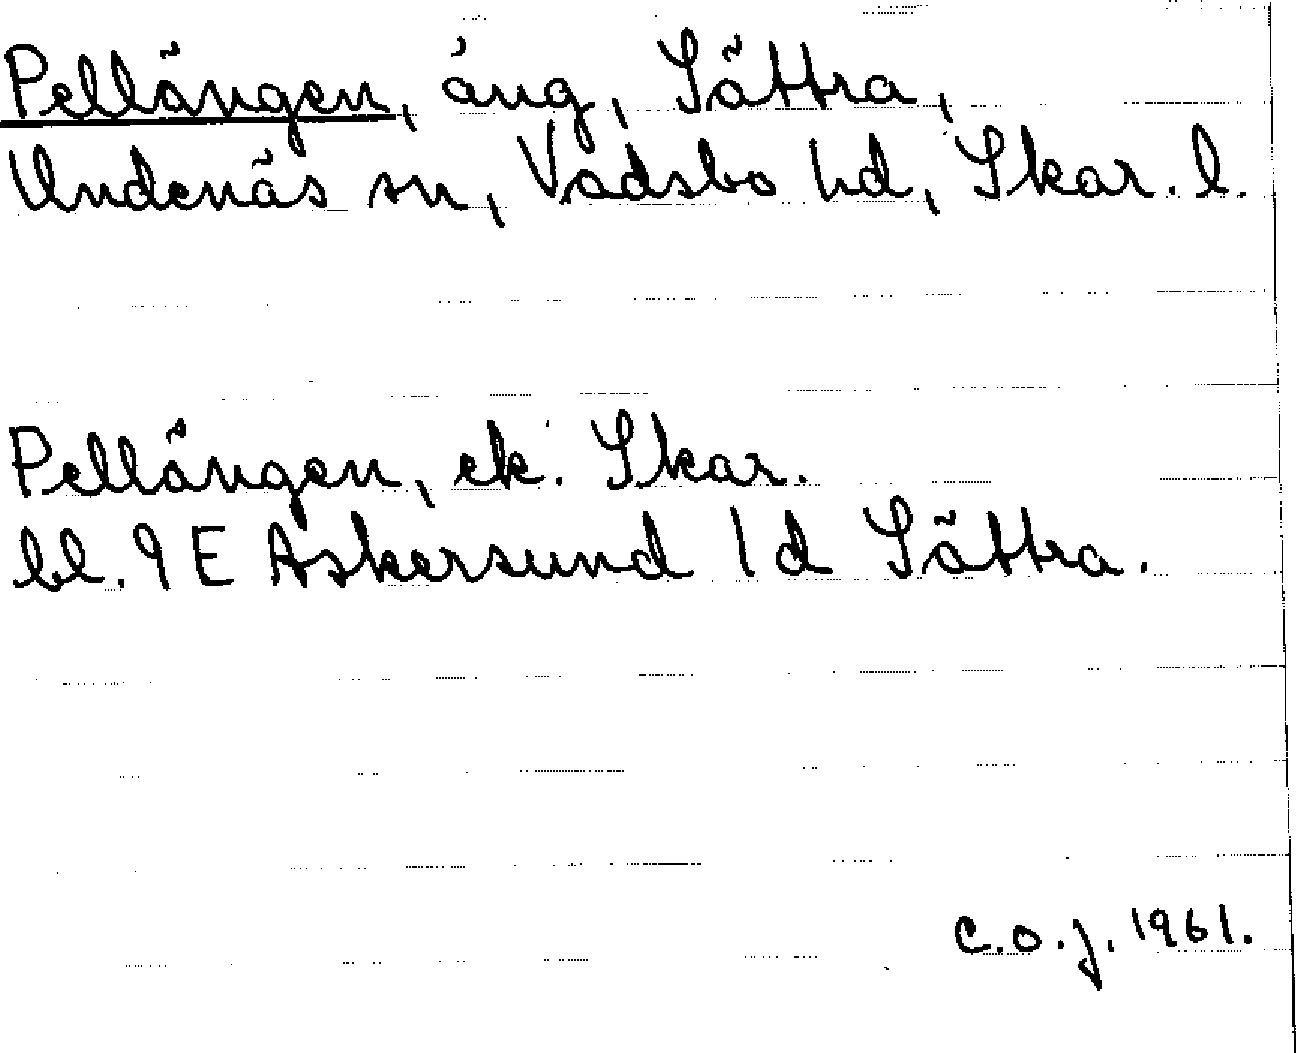 Pellängen, äng, Sättra,
Undenäs sn, Vadsbo hd, Skar. l.
Pellängen, ek. Skar.
bl. 9 E Askersund 1 d Sättra.
C.O.J. 1961.